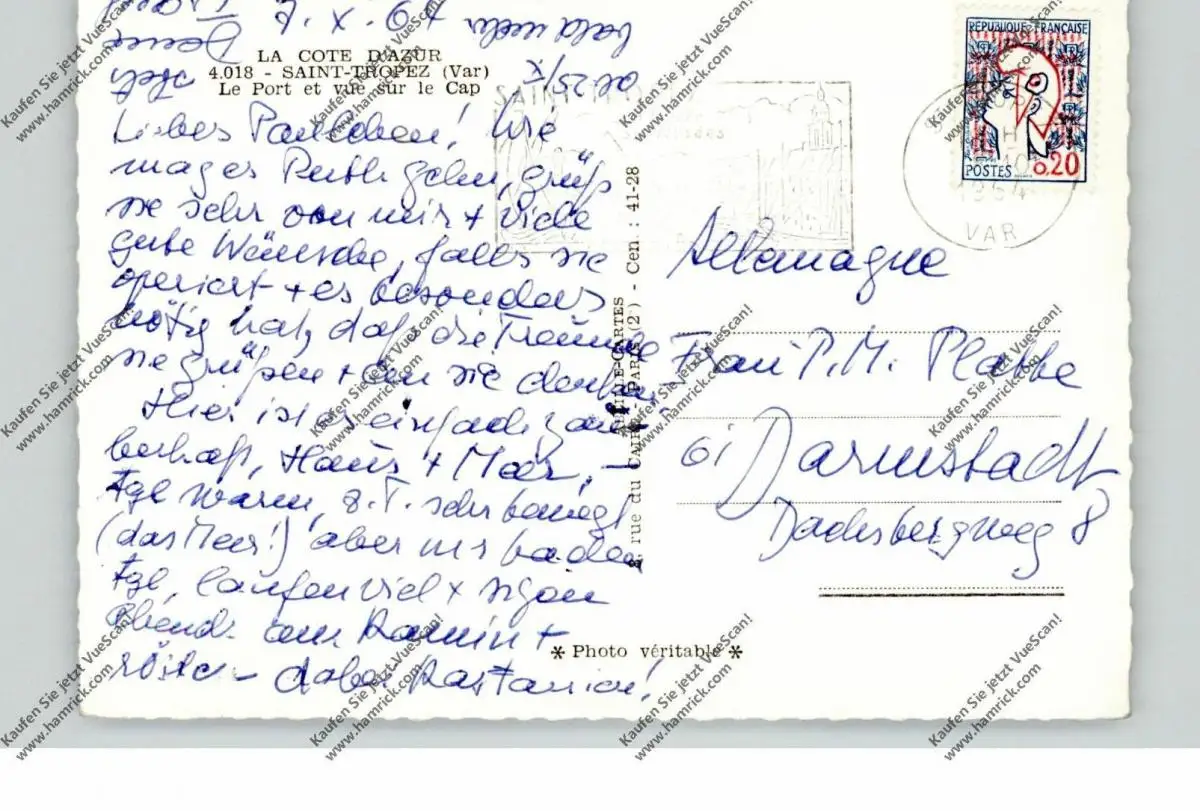 LA COTE D'AZUR
4.018 - SAINT-TROPEZ (Var)
Le Port et vue sur le Cap
Liebes Paulchen! Wie
mag es Ruth gehn, grüß
sie sehr von mir + viele
gute Wünsche, falls sie
operiert + es besonders
nötig hat, daß die Freunde
sie grüßen + an sie denken.
Hier ist es einfach zau-
berhaft, Haus + Meer, –
tgl warm, z.T. sehr bewegt
(das Meer!) aber wir baden
tgl, laufen viel + sitzen
Abends am Kamin +
rösten – dabei Kastanien!
bald mehr
RÉPUBLIQUE FRANÇAISE
POSTES 0,20
SAINT-TROPEZ
1964
VAR
8, rue du CAIRE - PARIS (2e) - Cen. : 41-28
Allemagne
Frau P.M. Platte
61 Darmstadt
Dachsbergweg 8
* Photo véritable *
Kaufen Sie jetzt VueScan!
www.hamrick.com